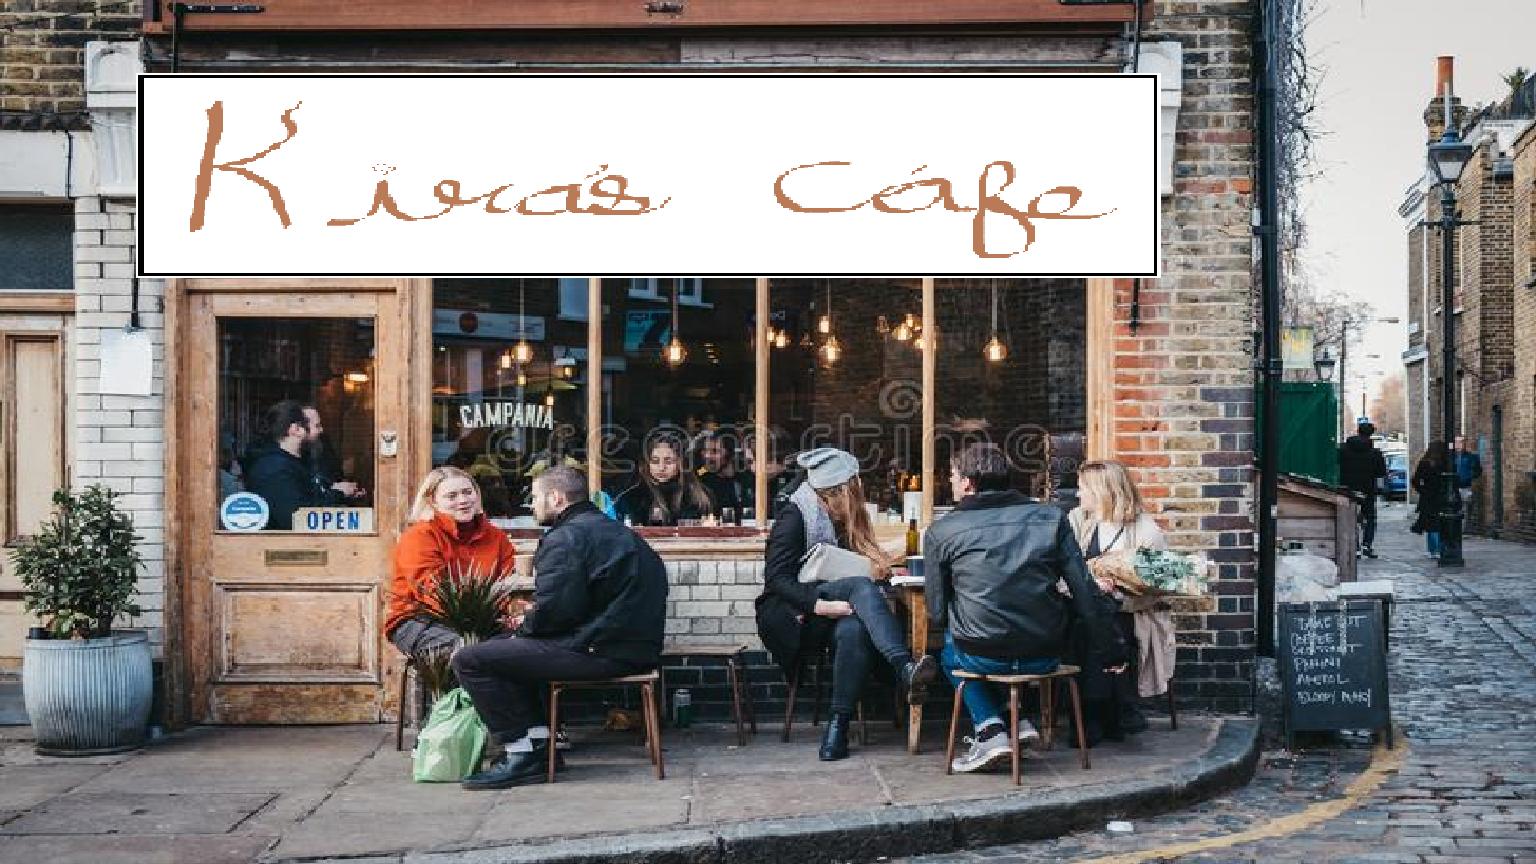 Kiva's Cafe
CAMPANIA
dreamstime
OPEN
TAKE OUT
COFFEE
PANINI
APEROL
BLOODY MARY